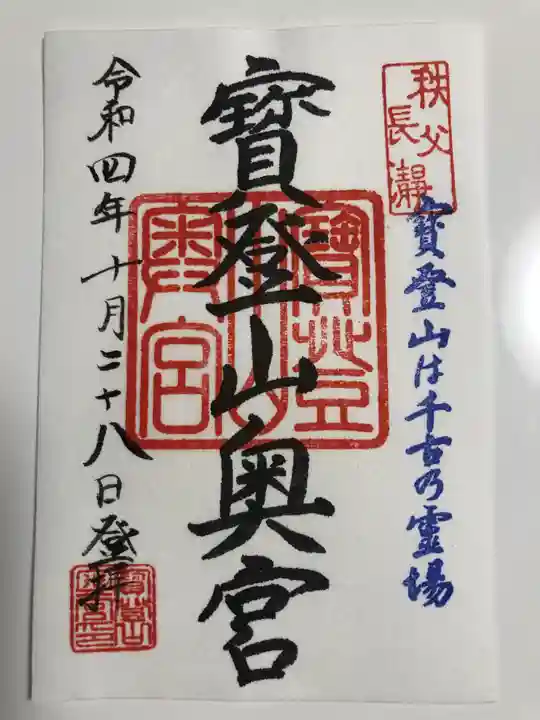 秩父
長瀞
寳登山は千古乃霊場
寳登山奥宮
寳登山
奥宮
令和四年十月二十八日登拝